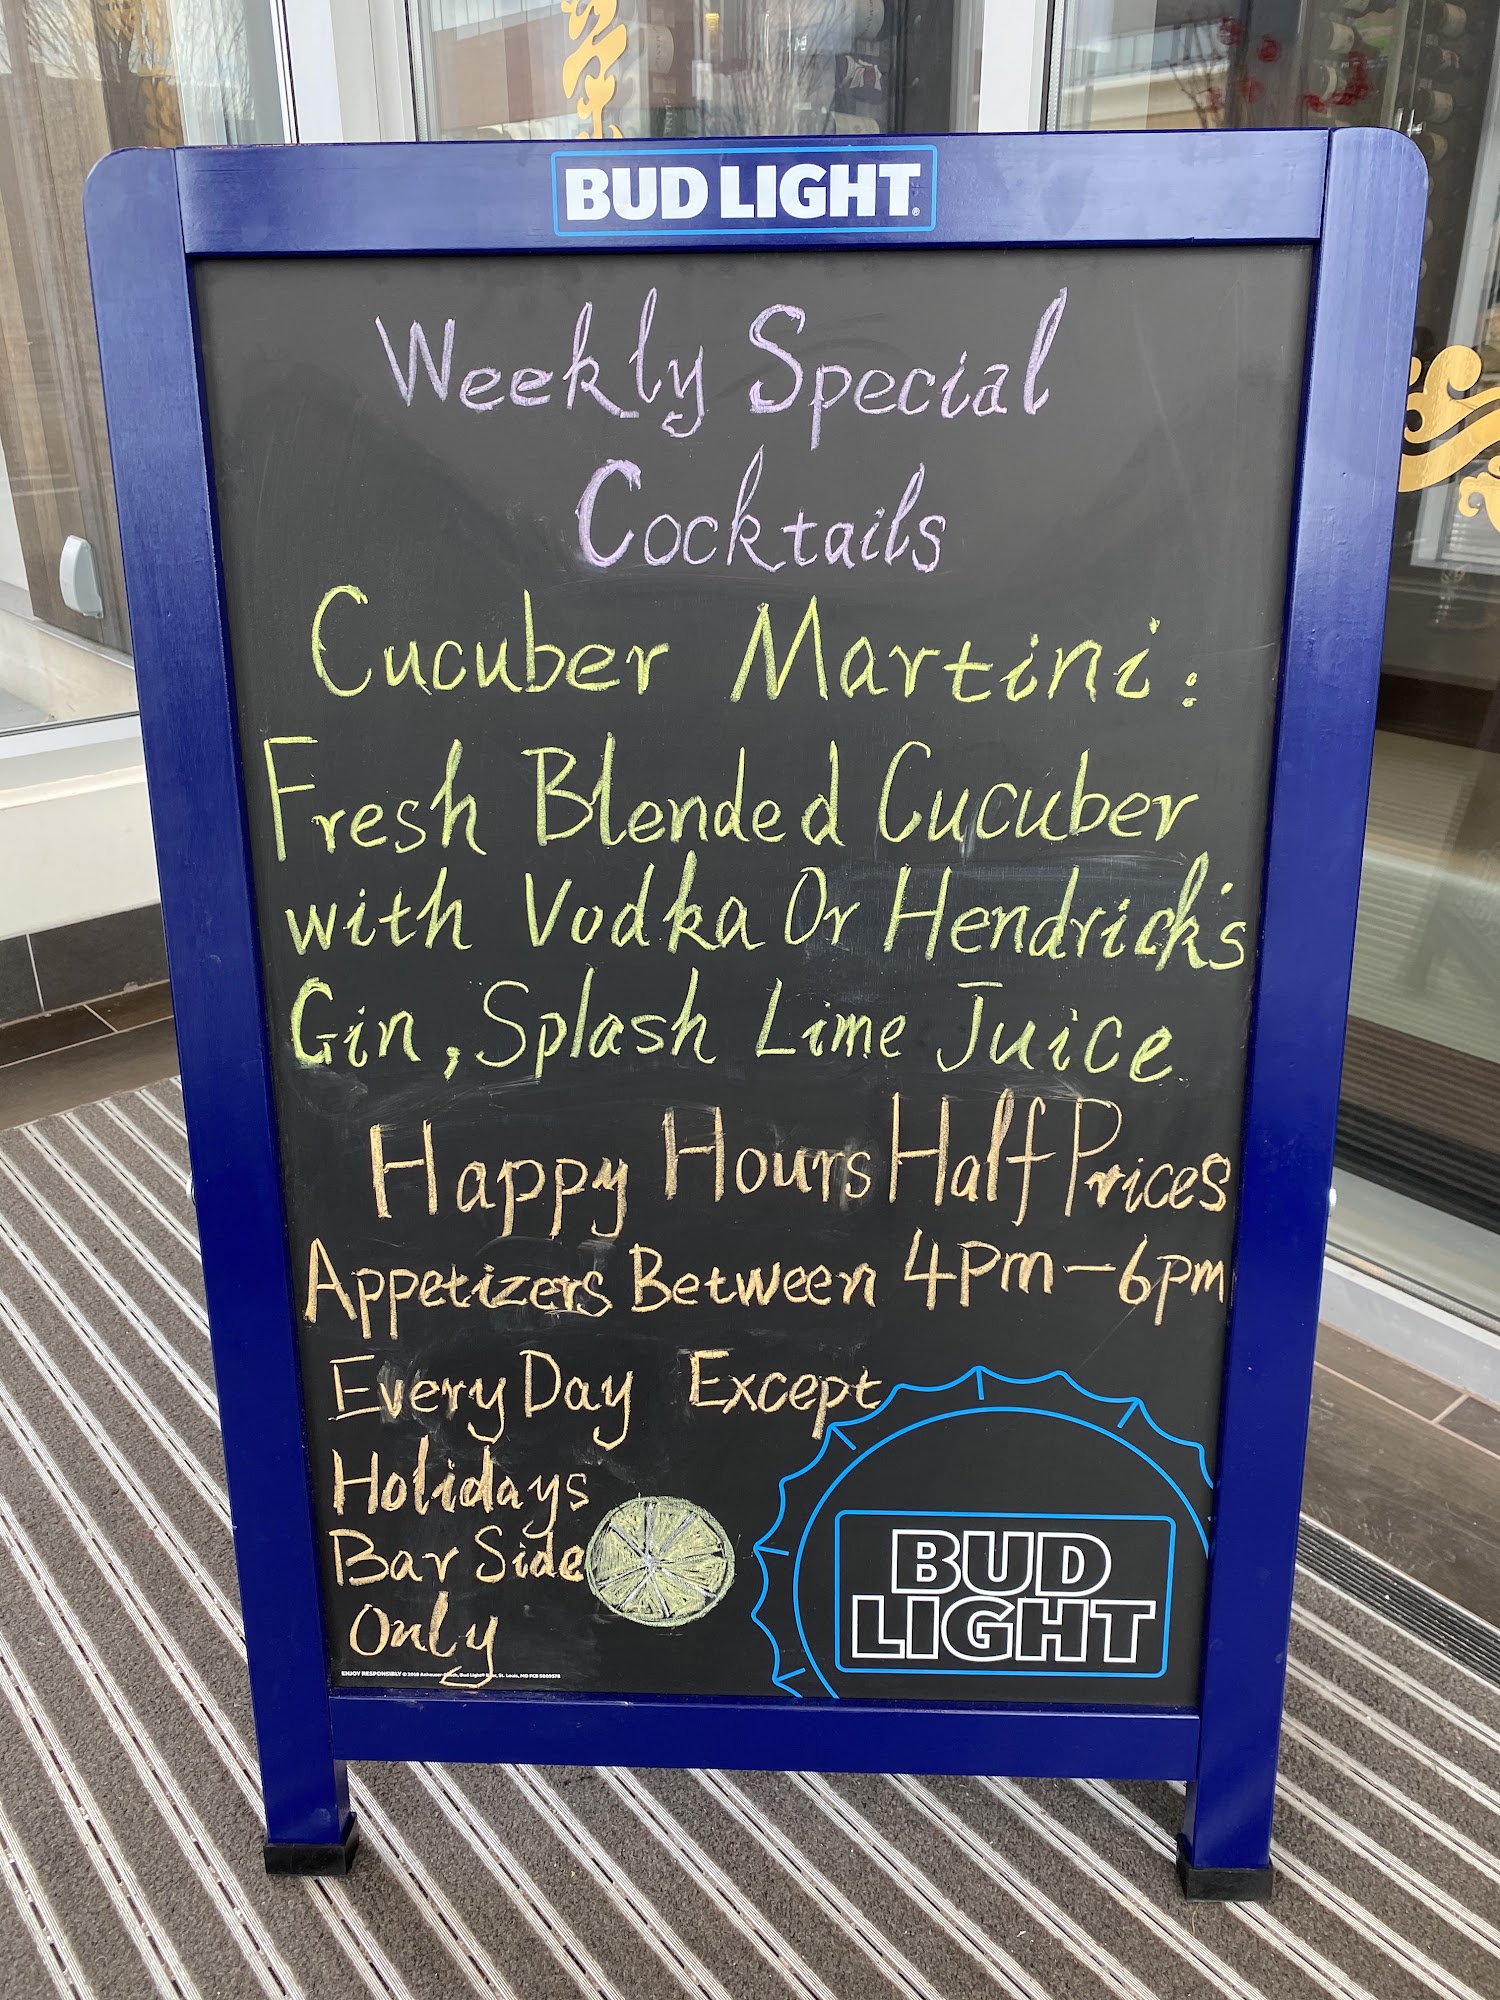 BUD LIGHT®
Weekly Special
Cocktails
Cucuber Martini:
Fresh Blended Cucuber
with Vodka Or Hendrick's
Gin, Splash Lime Juice
Happy Hours Half Prices
Appetizers Between 4pm-6pm
Every Day Except
Holidays
Bar Side
Only
BUD
LIGHT